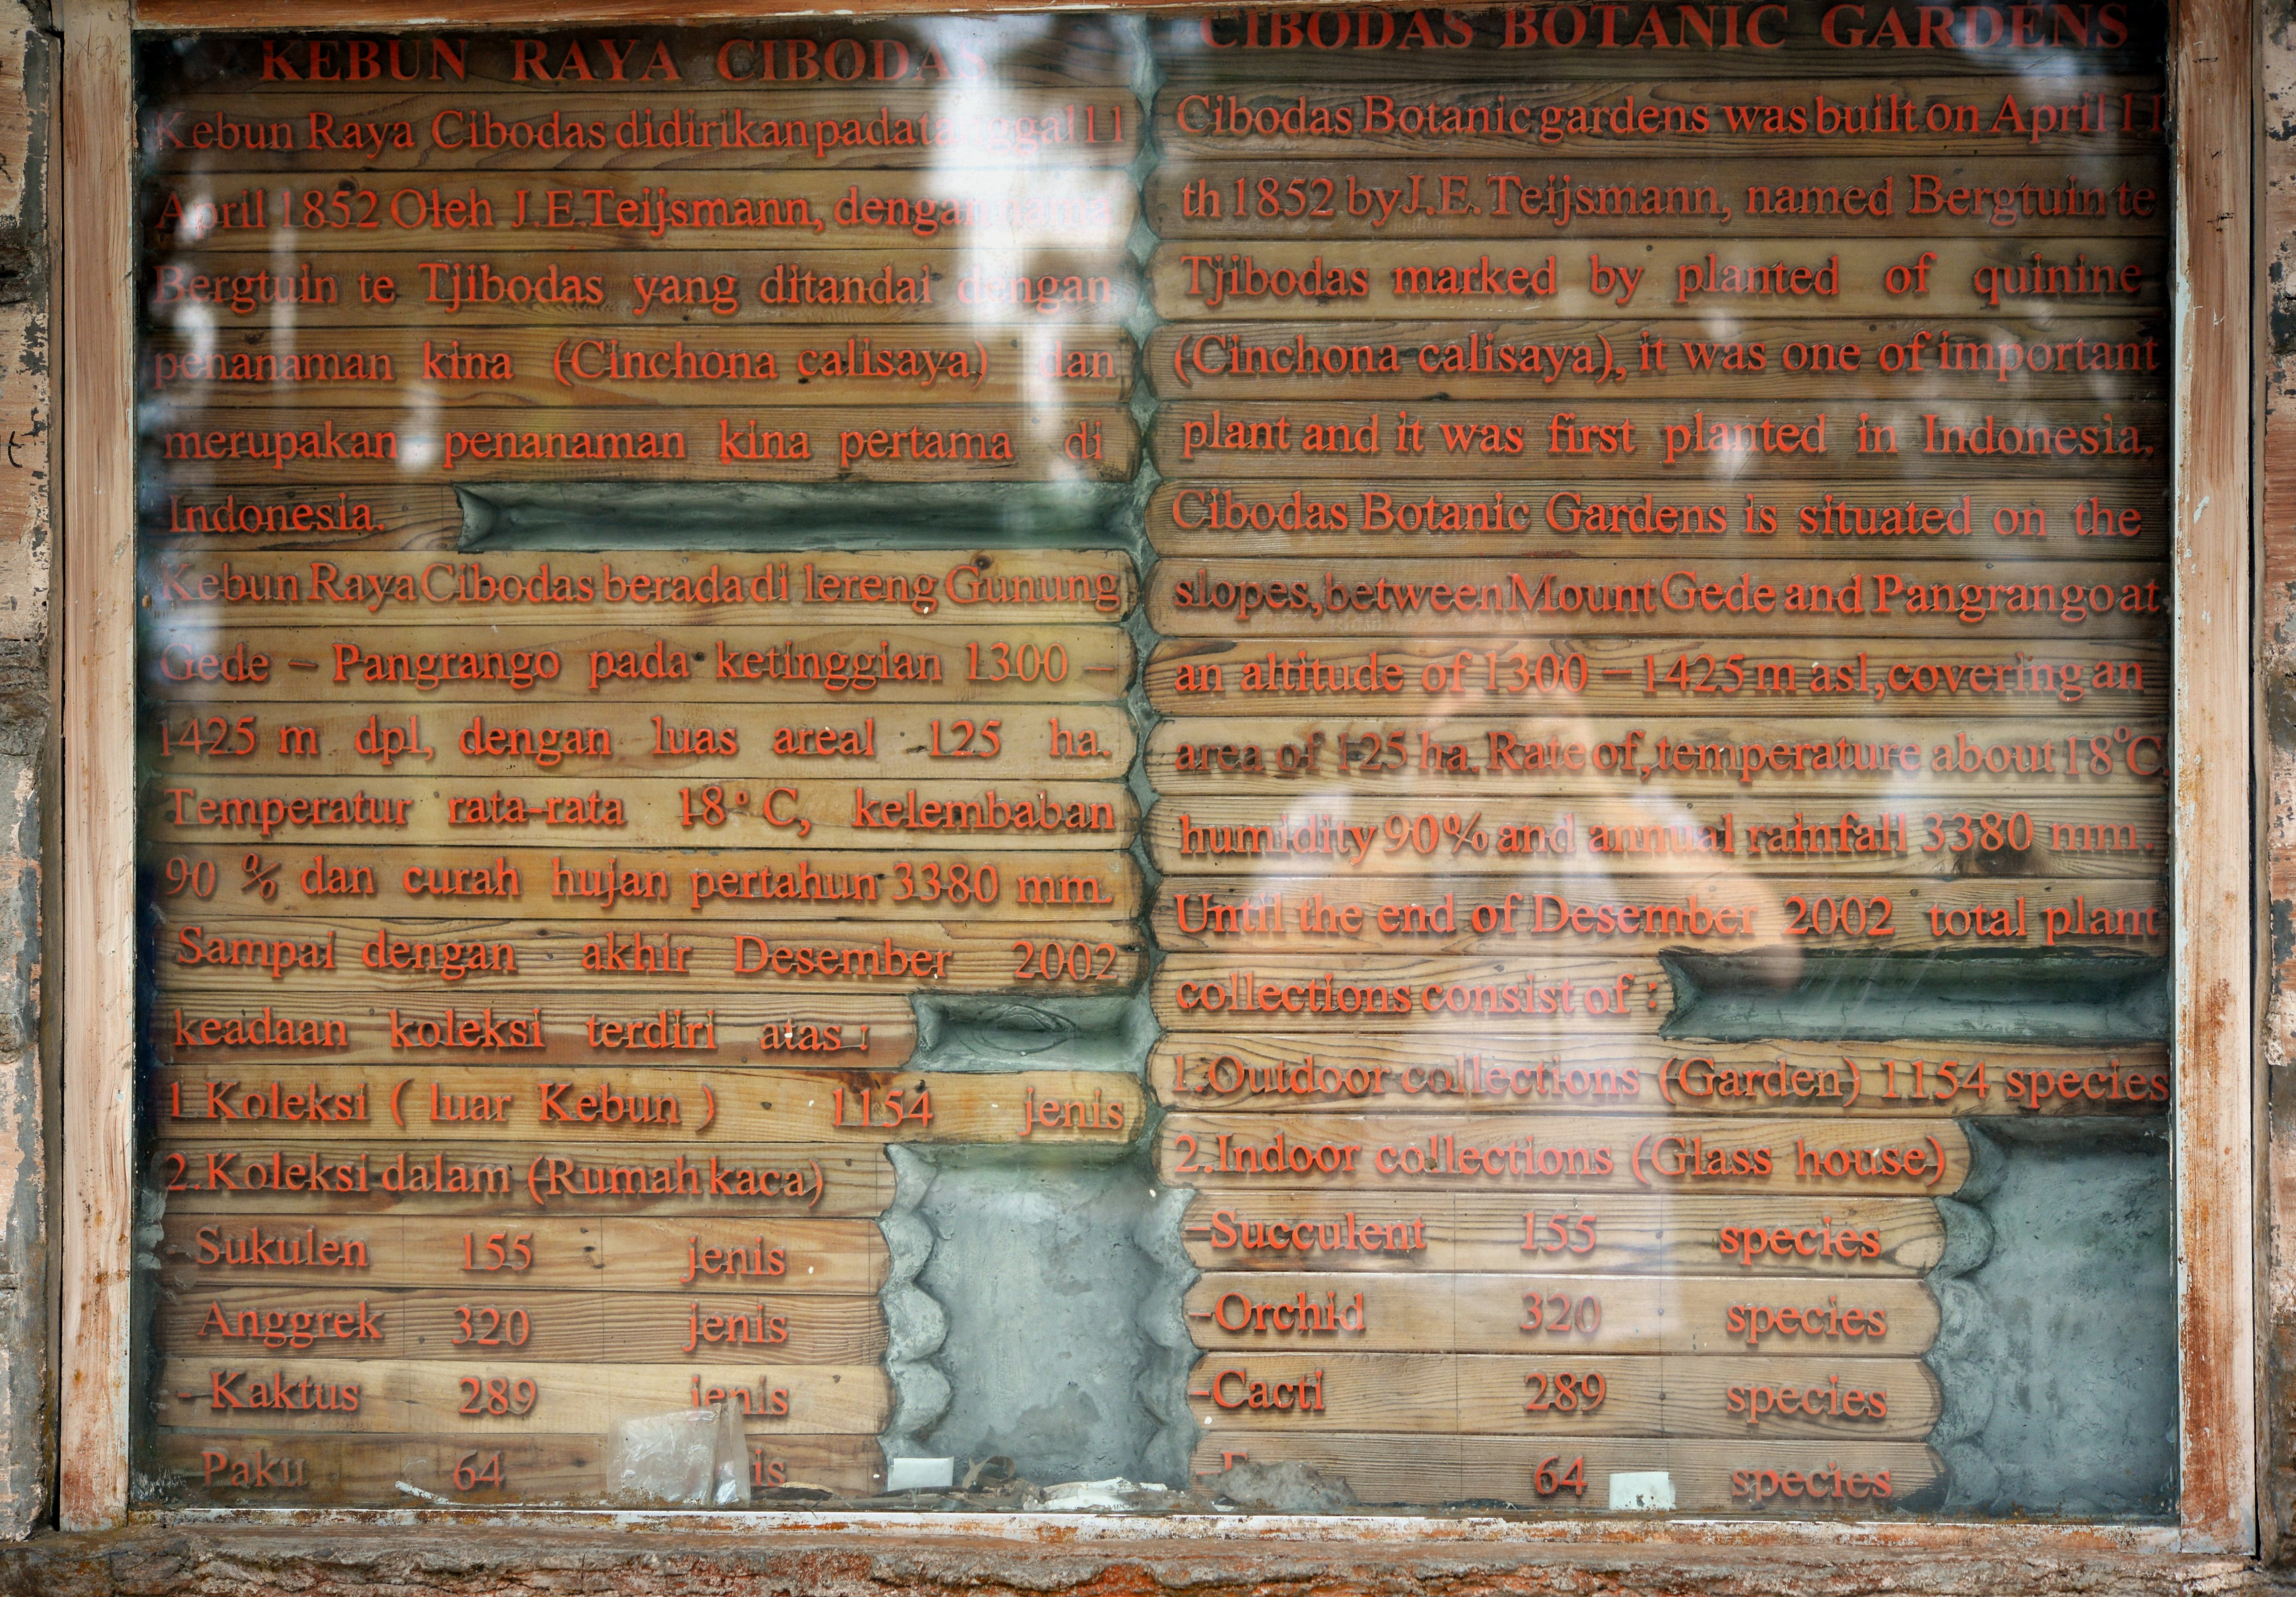 KEBUN RAYA CIBODAS
Kebun Raya Cibodas didirikan pada tanggal 11
April 1852 Oleh J.E.Teijsmann, dengan nama
Bergtuin te Tjibodas yang ditandai dengan
penanaman kina (Cinchona calisaya) dan
merupakan penanaman kina pertama di
Indonesia.
Kebun Raya Cibodas berada di lereng Gunung
Gede – Pangrango pada ketinggian 1300 –
1425 m dpl, dengan luas areal 125 ha.
Temperatur rata-rata 18°C, kelembaban
90 % dan curah hujan pertahun 3380 mm.
Sampai dengan akhir Desember 2002
keadaan koleksi terdiri atas :
1.Koleksi ( luar Kebun ) 1154 jenis
2.Koleksi dalam (Rumah kaca)
Sukulen 155 jenis
Anggrek 320 jenis
- Kaktus 289 jenis
Paku 64
CIBODAS BOTANIC GARDENS
Cibodas Botanic gardens was built on April 11
th 1852 by J.E. Teijsmann, named Bergtuin te
Tjibodas marked by planted of quinine
(Cinchona calisaya), it was one of important
plant and it was first planted in Indonesia.
Cibodas Botanic Gardens is situated on the
slopes, between Mount Gede and Pangrango at
an altitude of 1300 – 1425 m asl, covering an
area of 125 ha. Rate of, temperature about 18°C,
humidity 90% and annual rainfall 3380 mm.
Until the end of Desember 2002 total plant
collections consist of :
1.Outdoor collections (Garden) 1154 species
2.Indoor collections (Glass house)
-Succulent 155 species
-Orchid 320 species
-Cacti 289 species
64 species